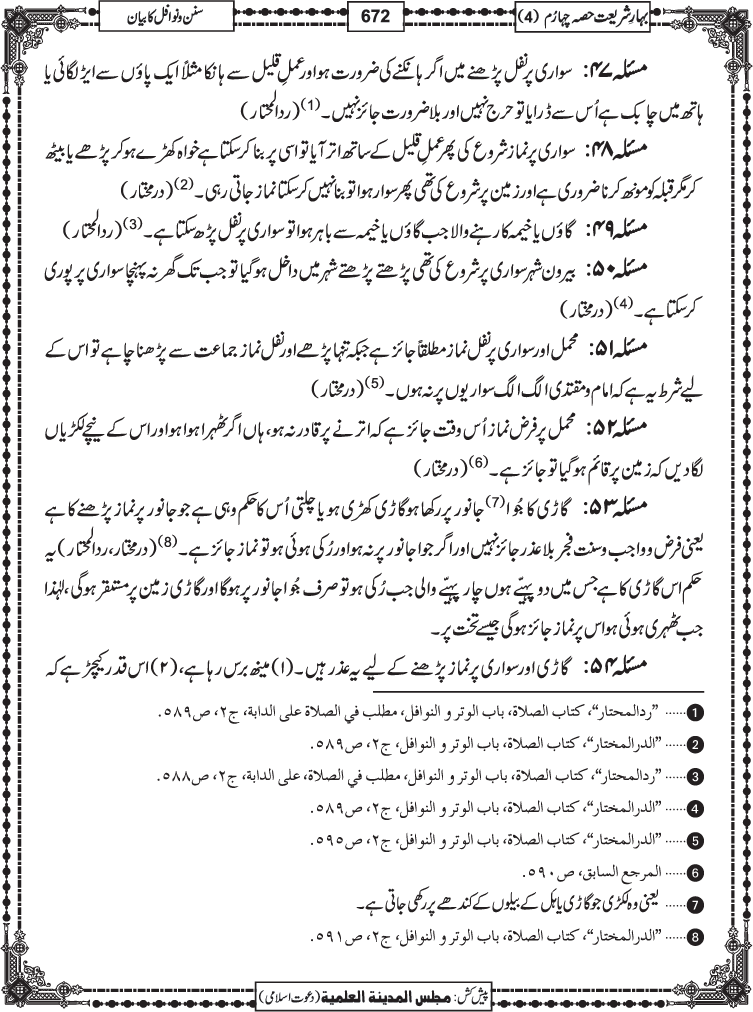 بہارِ شریعت حصہ چہارُم (4)
672
سنن و نوافل کا بیان
مسئلہ ۴۷: سواری پر نفل پڑھنے میں اگر ہانکنے کی ضرورت ہو اور عملِ قلیل سے ہانکا مثلاً ایک پاؤں سے ایڑ لگائی یا
ہاتھ میں چابک ہے اُس سے ڈرایا تو حرج نہیں اور بلاضرورت جائز نہیں۔ (1) (ردالمحتار)
مسئلہ ۴۸: سواری پر نماز شروع کی پھر عملِ قلیل کے ساتھ اتر آیا تو اسی پر بنا کرسکتا ہے خواہ کھڑے ہوکر پڑھے یا بیٹھ
کر مگر قبلہ کو مونھ کرنا ضروری ہے اور زمین پر شروع کی تھی پھر سوار ہوا تو بنا نہیں کرسکتا نماز جاتی رہی۔ (2) (درمختار)
مسئلہ ۴۹: گاؤں یا خیمہ کا رہنے والا جب گاؤں یا خیمہ سے باہر ہوا تو سواری پر نفل پڑھ سکتا ہے۔ (3) (ردالمحتار)
مسئلہ ۵۰: بیرون شہر سواری پر شروع کی تھی پڑھتے پڑھتے شہر میں داخل ہوگیا تو جب تک گھر نہ پہنچا سواری پر پوری
کرسکتا ہے۔ (4) (درمختار)
مسئلہ ۵۱: محمل اور سواری پر نفل نماز مطلقاً جائز ہے جبکہ تنہا پڑھے اور نفل نماز جماعت سے پڑھنا چاہے تو اس کے
لیے شرط یہ ہے کہ امام و مقتدی الگ الگ سواریوں پر نہ ہوں۔ (5) (درمختار)
مسئلہ ۵۲: محمل پر فرض نماز اُس وقت جائز ہے کہ اترنے پر قادر نہ ہو، ہاں اگر ٹھہرا ہوا ہو اور اس کے نیچے لکڑیاں
لگا دیں کہ زمین پر قائم ہوگیا تو جائز ہے۔ (6) (درمختار)
مسئلہ ۵۳: گاڑی کا جُوا (7) جانور پر رکھا ہو گاڑی کھڑی ہو یا چلتی اُس کا حکم وہی ہے جو جانور پر نماز پڑھنے کا ہے
یعنی فرض و واجب و سنت فجر بلاعذر جائز نہیں اور اگر جوا جانور پر نہ ہو اور رُکی ہوئی ہو تو نماز جائز ہے۔ (8) (درمختار، ردالمحتار) یہ
حکم اس گاڑی کا ہے جس میں دو پہیّے ہوں چار پہیّے والی جب رُکی ہو تو صرف جُوا جانور پر ہوگا اور گاڑی زمین پر مستقر ہوگی، لہٰذا
جب ٹھہری ہوئی ہو اس پر نماز جائز ہوگی جیسے تخت پر۔
مسئلہ ۵۴: گاڑی اور سواری پر نماز پڑھنے کے لیے یہ عذر ہیں۔ (۱) مینھ برس رہا ہے، (۲) اس قدر کیچڑ ہے کہ
1 ...... ”ردالمحتار“، كتاب الصلاة، باب الوتر و النوافل، مطلب في الصلاة على الدابة، ج۲، ص۵۸۹.
2 ...... ”الدرالمختار“، كتاب الصلاة، باب الوتر و النوافل، ج۲، ص۵۸۹.
3 ...... ”ردالمحتار“، كتاب الصلاة، باب الوتر و النوافل، مطلب في الصلاة، على الدابة، ج۲، ص۵۸۸.
4 ...... ”الدرالمختار“، كتاب الصلاة، باب الوتر و النوافل، ج۲، ص۵۸۹.
5 ...... ”الدرالمختار“، كتاب الصلاة، باب الوتر و النوافل، ج۲، ص۵۹۵.
6 ...... المرجع السابق، ص۵۹۰.
7 ...... یعنی وہ لکڑی جو گاڑی یا ہل کے بیلوں کے کندھے پر رکھی جاتی ہے۔
8 ...... ”الدرالمختار“، كتاب الصلاة، باب الوتر و النوافل، ج۲، ص۵۹۱.
پیش کش: مجلس المدينة العلمية (دعوت اسلامی)